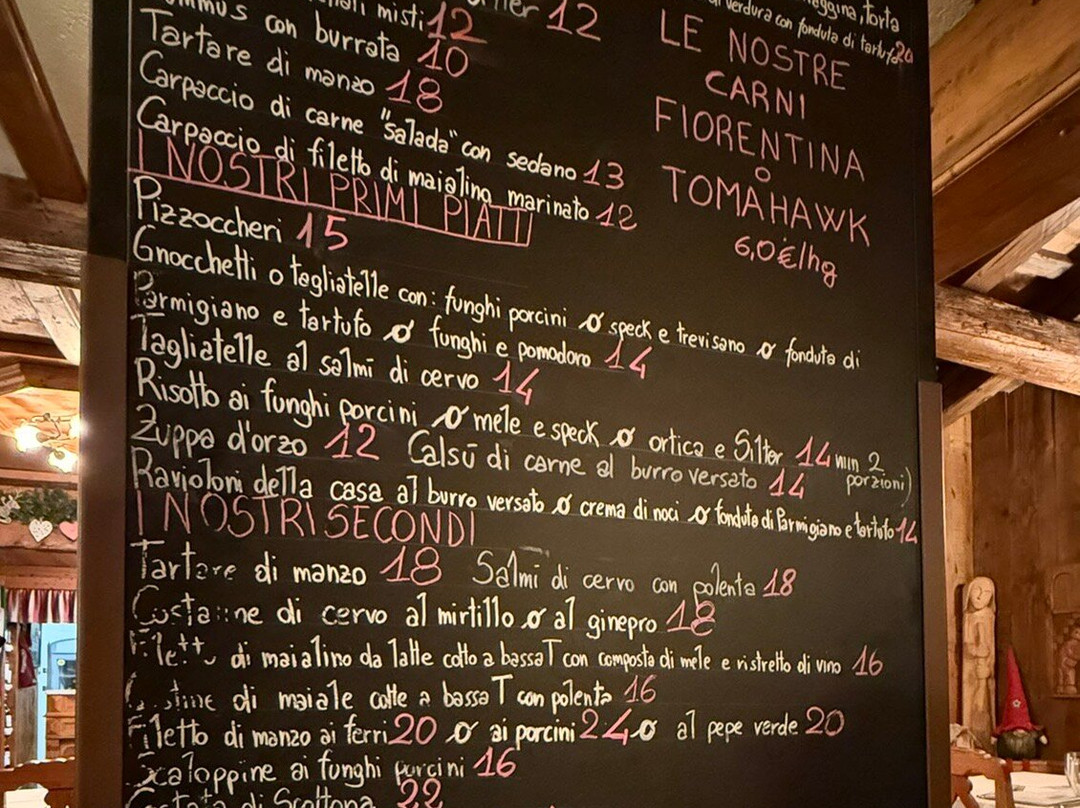 misti 12
con burrata 10
Tartare di manzo 18
Carpaccio di carne "salada" con sedano 13
Carpaccio di filetto di maialino marinato 12
12
torta
verdura con fonduta di tartufo 20
LE NOSTRE
CARNI
FIORENTINA
O
TOMAHAWK
6,0€/hg
I NOSTRI PRIMI PIATTI
Pizzoccheri 15
Gnocchetti o tagliatelle con: funghi porcini o speck e trevisano o fonduta di
Parmigiano e tartufo o funghi e pomodoro 14
Tagliatelle al salmì di cervo 14
Risotto ai funghi porcini o mele e speck o ortica e Silter 14 min 2
porzioni)
Zuppa d'orzo 12 Calsù di carne al burro versato 14
Ravioloni della casa al burro versato o crema di noci o fonduta di Parmigiano e tartufo 14
I NOSTRI SECONDI
Tartare di manzo 18 Salmì di cervo con polenta 18
di cervo al mirtillo o al ginepro 18
Filetto di maialino da latte cotto a bassa T con composta di mele e ristretto di vino 16
di maiale cotte a bassa T con polenta 16
Filetto di manzo ai ferri 20 o ai porcini 24 o al pepe verde 20
Scaloppine ai funghi porcini 16
di Scottona 22